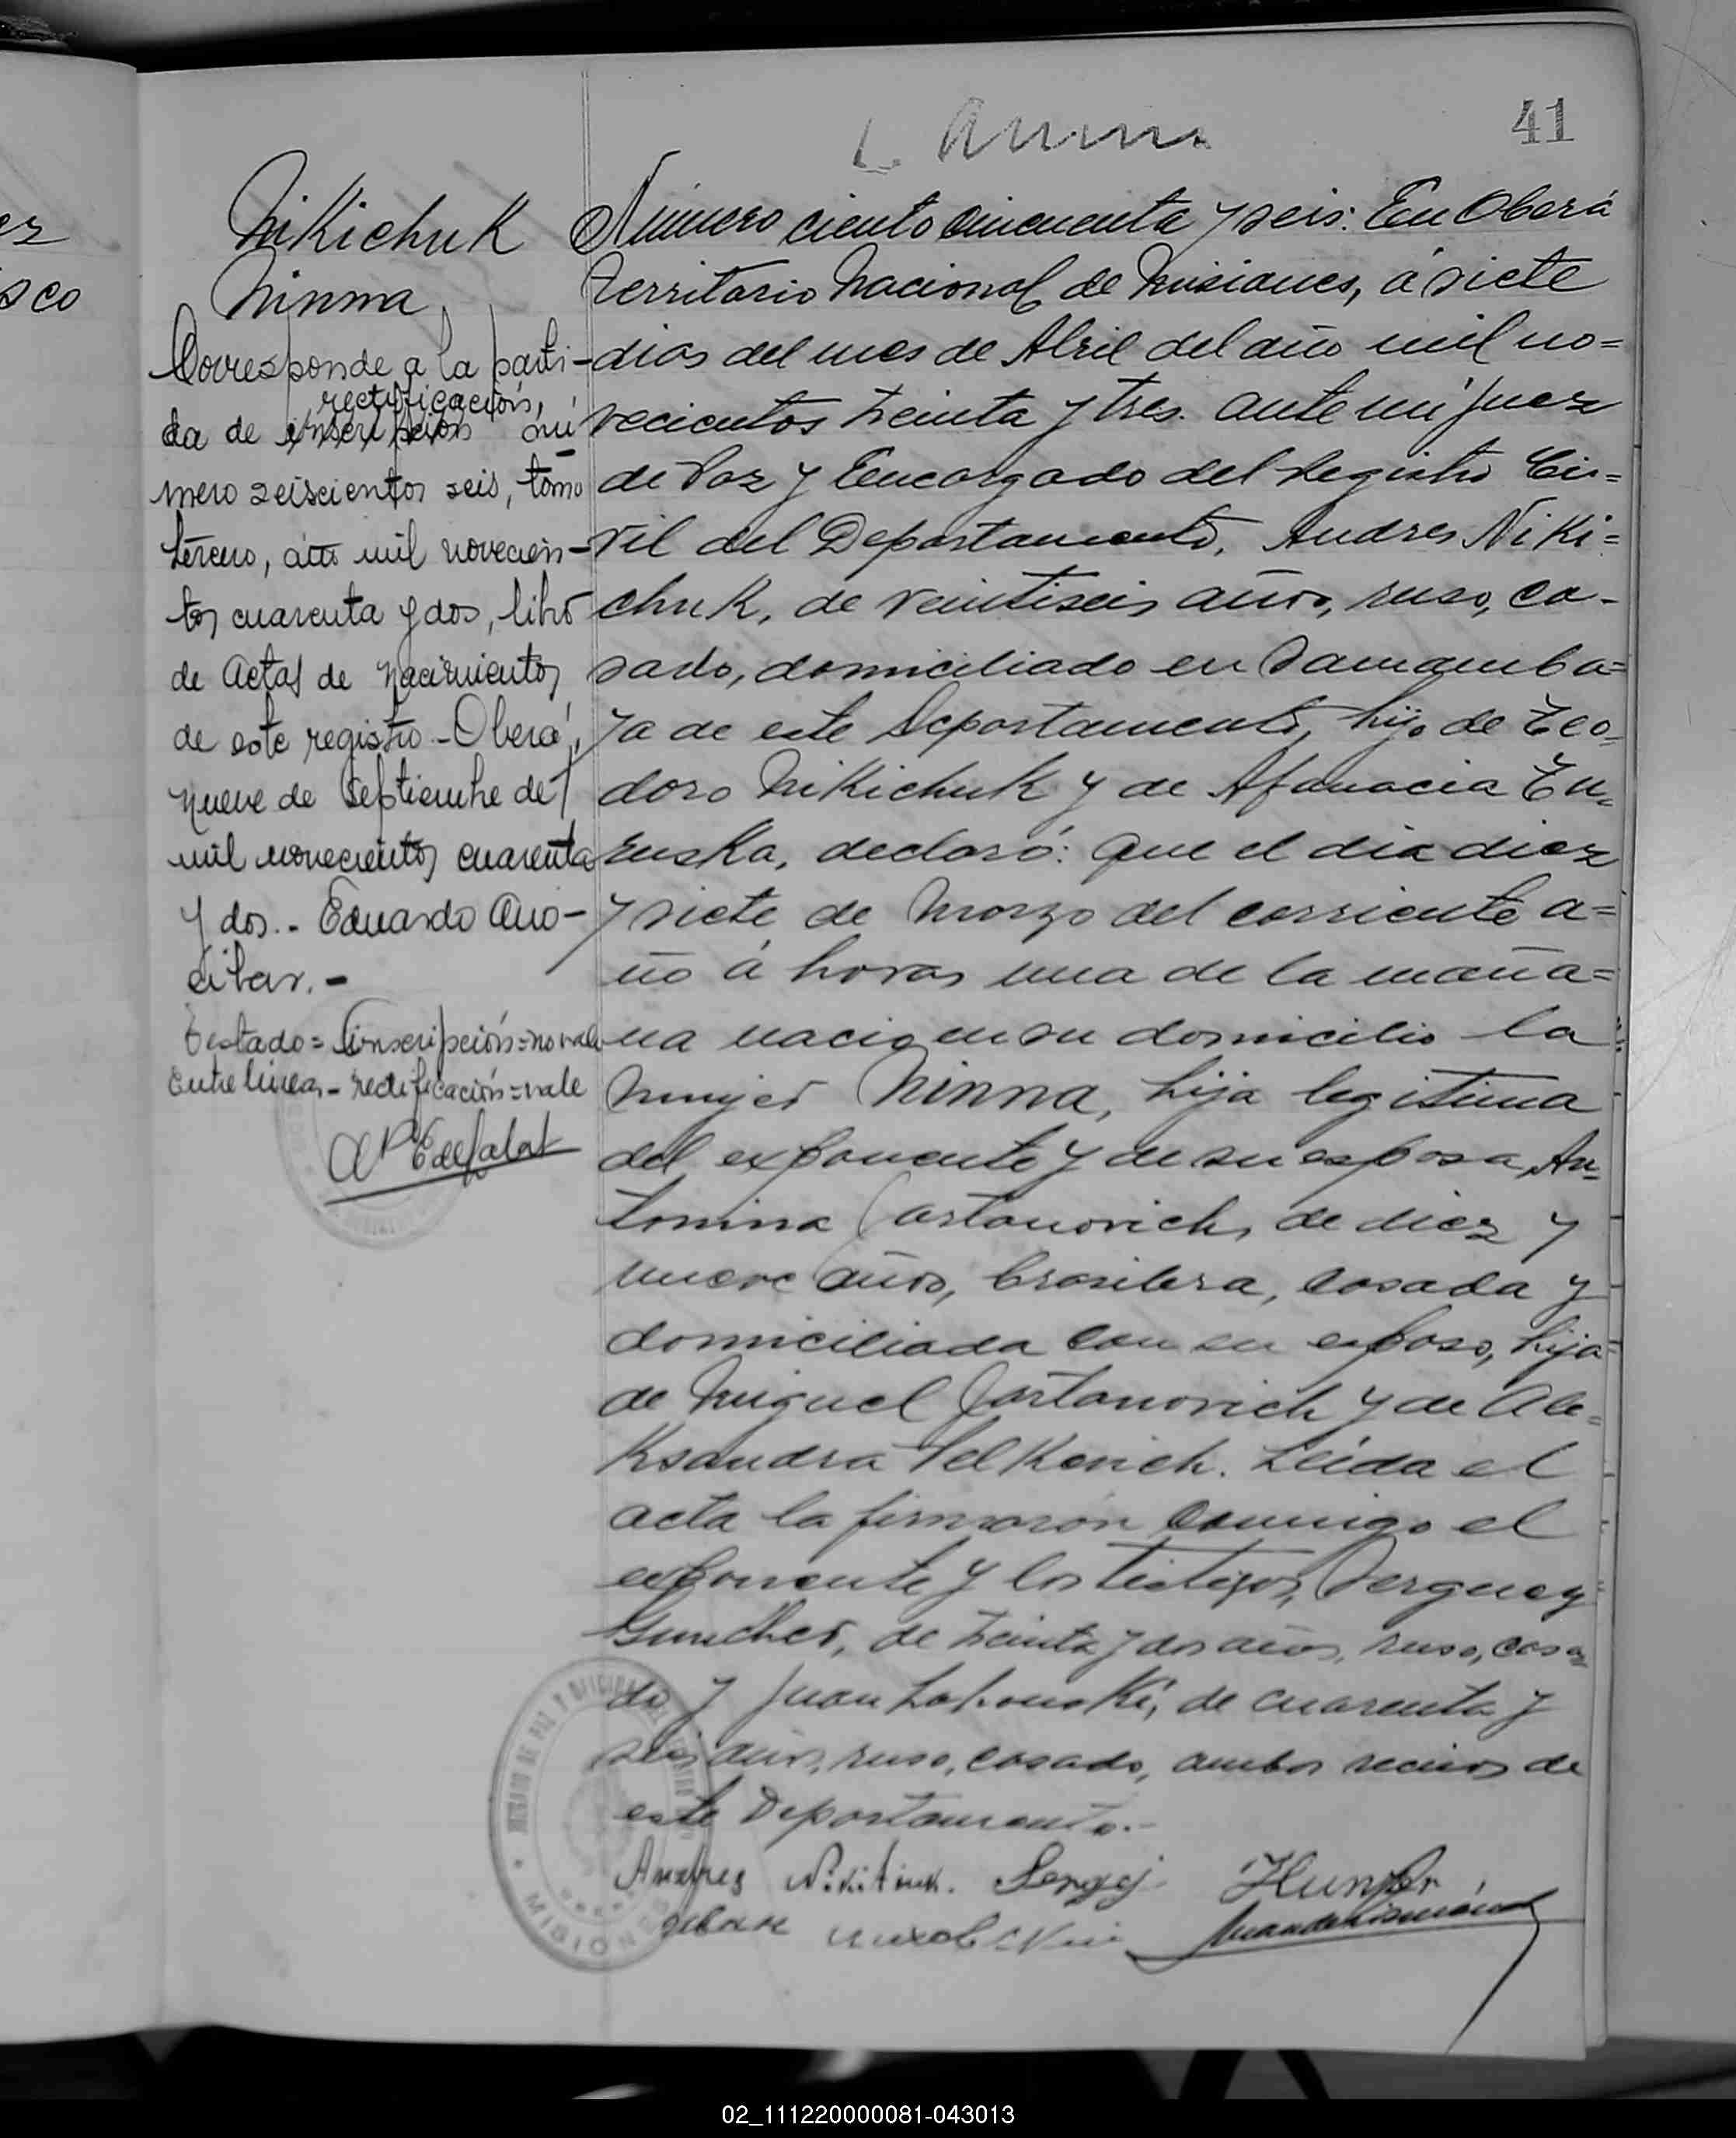 41
Nikichuk
Ninna
Corresponde a la parti-
rectificación,
da de inscripcion nú
mero seiscientos seis, tomo
tercero, año mil novecien-
tos cuarenta y dos, libro
de Actas de Nacimientos
de este registro - Oberá,
nueve de Septiembre de
mil novecientos cuarenta
y dos.- Eduardo
Testado = inscripción = no vale
Entre lineas - rectificación = vale
Número ciento cincuenta y seis: En Oberá
Territorio Nacional de Misiones, á siete
dias del mes de Abril del año mil no=
vecientos treinta y tres. ante mi Juez
de Paz y Encargado del Registro Ci=
vil del Departamento, Andres Niki=
chuk, de veintiseis años, ruso, ca-
sado, domiciliado en Samamba=
ya de este Departamento, hijo de Teo-
doro Nikichuk y de Afanacia
declaró: Que el dia diez
y siete de Marzo del corriente a=
ño á horas una de la maña=
na nacio en su domicilio la
mujer Ninna, hija legitima
del exponente y de su esposa, An-
tonina Jartanovich, de diez y
nueve años, brasilera, casada y
domiciliada con su esposo, hija
de Miguel Jartanovich y de Ale=
ksandra Velkevich. Leida el
acta la firmaron conmigo el
exponente y los testigos, Serguey
Guncher, de treinta y dos años, ruso, casa=
do y Juan de cuarenta y
seis años, ruso, casado, ambos vecinos de
este Departamento.-
Andres Nikitiuk. Sergej
MISIONES
02_111220000081-043013